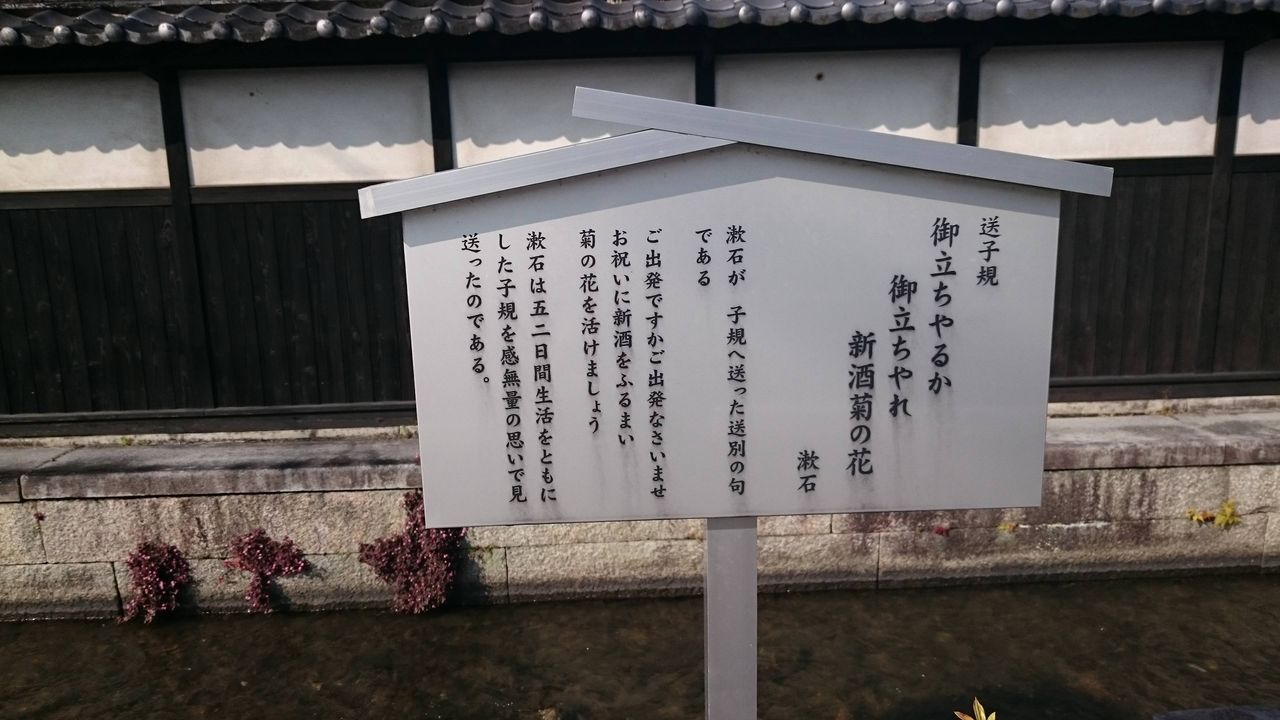 送子規
御立ちやるか
御立ちやれ
新酒菊の花
漱石
漱石が 子規へ送った送別の句
である
ご出発ですかご出発なさいませ
お祝いに新酒をふるまい
菊の花を活けましょう
漱石は五二日間生活をともに
した子規を感無量の思いで見
送ったのである。